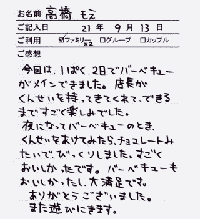 お名前 高橋 もえ
ご記入日 21年 9月 13日
ご利用 ☑ファミリー x2 □グループ □カップル
ご感想
今回は、1ぱく2日でバーベキュー
がメインできました。店長が
くんせいを持ってきてくれて、できる
まですごく楽しみでした。
夜になってバーベキューのとき、
くんせいをあけてみたら、チョコレートみ
たいで、びっくりしました。すごく
おいしかったです。バーベキューも
おいしかったし、大満足です。
ありがとうございました。
また遊びにきます。